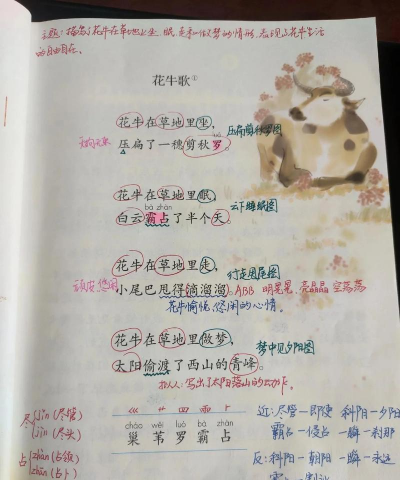 主题：描写了花牛在草地上坐、眠、走和做梦的情形，表现了花牛生活
的自由自在。
花牛歌①
花牛在草地里坐，
压扁了一穗剪秋罗。
压扁剪秋罗图
花牛在草地里眠，
云下睡眠图
bà zhàn
白云霸占了半个天。
花牛在草地里走，
行走甩尾图
小尾巴甩得滴溜溜。
ABB 明晃晃 亮晶晶 空荡荡
花牛愉悦、悠闲的心情。
花牛在草地里做梦，
梦中见夕阳图
太阳偷渡了西山的青峰。
拟人：写出了太阳落山的动作。
巛 艹 四 雨 卜
cháo wěi luó bà zhàn
巢 苇 罗 霸 占
尽 jǐn（尽管）
jìn（尽头）
占 zhàn（占领）
zhān（占卜）
近：尽管—即使 斜阳—夕阳
霸占—侵占 一瞬—刹那
反：斜阳—朝阳 一瞬—永远